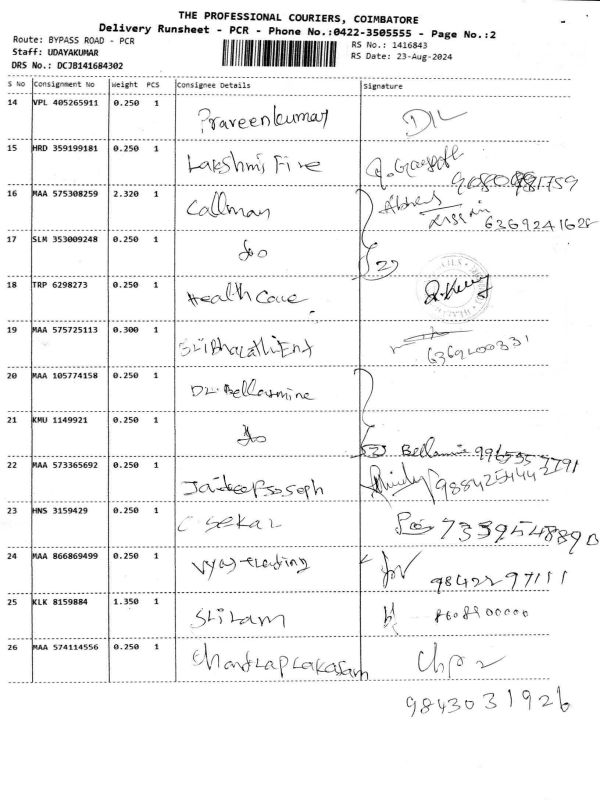 THE PROFESSIONAL COURIERS, COIMBATORE
Delivery Runsheet - PCR - Phone No.:0422-3505555 - Page No.:2
Route: BYPASS ROAD - PCR
RS No.: 1416843
Staff: UDAYAKUMAR
RS Date: 23-Aug-2024
DRS No.: DCJB141684302
S No Consignment No Weight PCS Consignee Details Signature
14 VPL 405265911 0.250 1 Praveenkumar
15 HRD 359199181 0.250 1 Lakshmi Fire
16 MAA 575308259 2.320 1 Callman
6369241628
17 SLM 353009248 0.250 1 do
18 TRP 6298273 0.250 1 Health Care
19 MAA 575725113 0.300 1 SriBharathiEnt
6369200331
20 MAA 105774158 0.250 1 Dr. Bellarmine
21 KMU 1149921 0.250 1 do
22 MAA 573365692 0.250 1 Jaideep Joseph
23 HNS 3159429 0.250 1 C Sekar
24 MAA 866869499 0.250 1 Vyas trading
98422 97111
25 KLK 8159884 1.350 1 Sriram
26 MAA 574114556 0.250 1 Chandraprakasam
9843031926